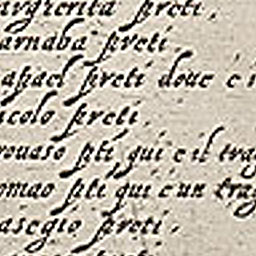 argherita preti.
arnaba preti.
apael preti doue è i
icolo preti.
rouaso pti, qui è il trag
omao pti qui è un trag
asegio preti.